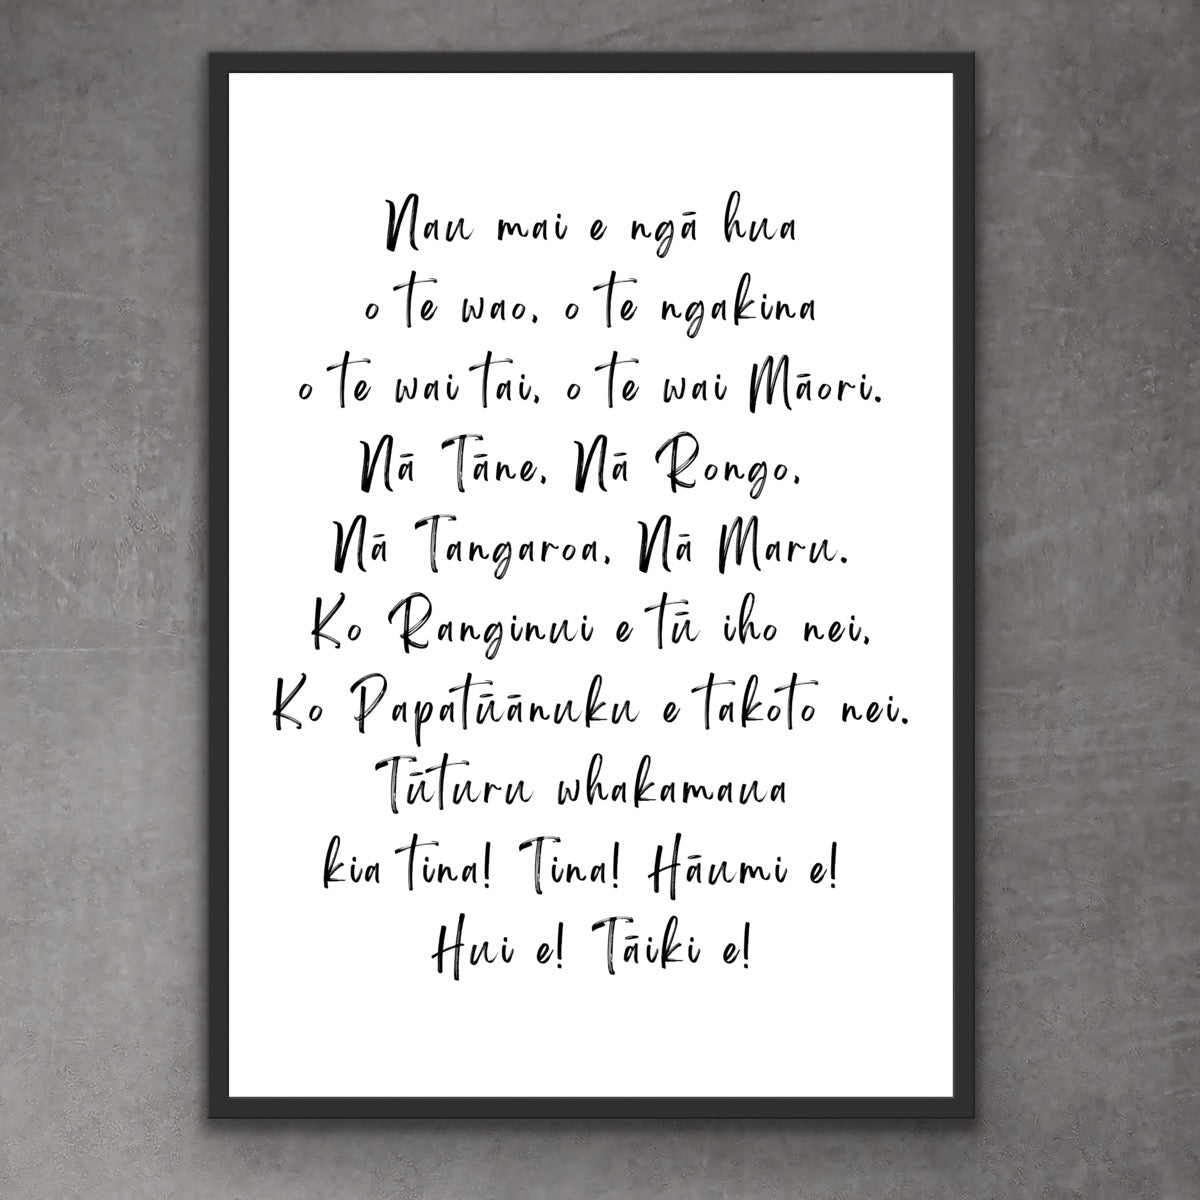 Nau mai e ngā hua
o te wao, o te ngakina
o te wai tai, o te wai Māori.
Nā Tāne, Nā Rongo,
Nā Tangaroa, Nā Maru.
Ko Ranginui e tū iho nei,
Ko Papatūānuku e takoto nei.
Tūturu whakamaua
kia tina! Tina! Hāumi e!
Hui e! Tāiki e!